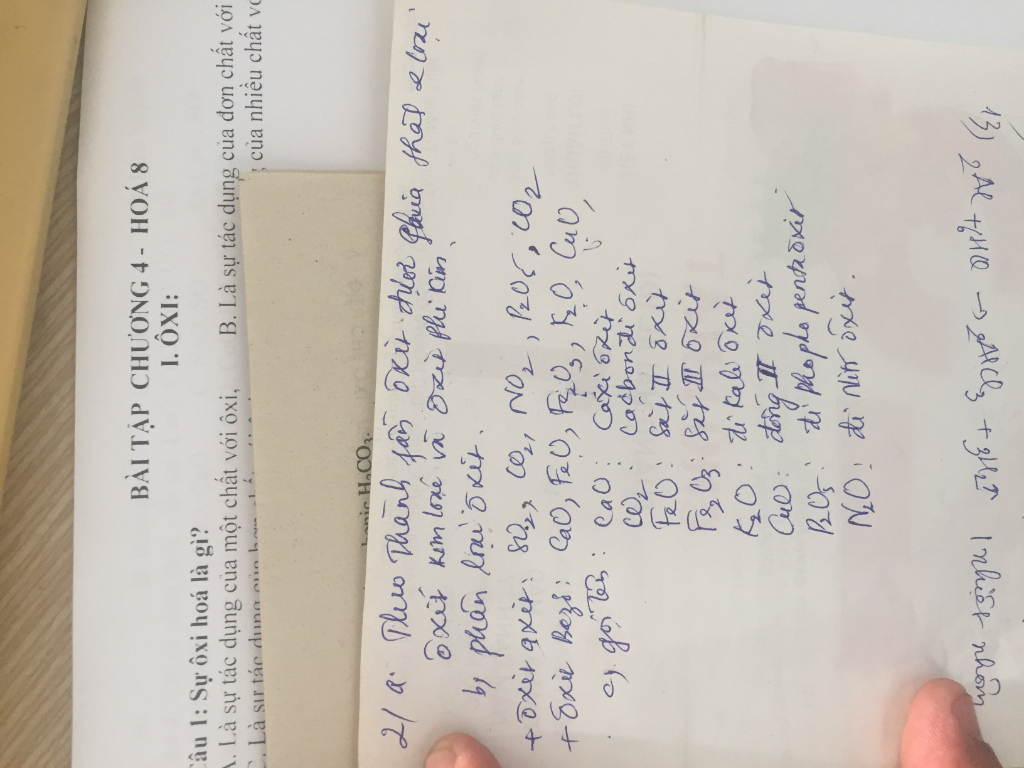 BÀI TẬP CHƯƠNG 4 - HOÁ 8
I. ÔXI:
Câu 1: Sự ôxi hoá là gì?
A. Là sự tác dụng của một chất với ôxi, B. Là sự tác dụng của đơn chất với
của nhiều chất
H₂CO₃.
2/ a. Theo thành phần ôxit được chia thành 2 loại
ôxit kim loại và ôxit phi kim.
b, phân loại ôxit.
+ ôxit axit: SO₂, CO₂, NO₂, P₂O₅, CO₂
+ ôxit Bazơ: CaO, FeO, Fe₂O₃, K₂O, CuO,
c, gọi Tên: CaO: Caxi ôxit
CO₂: cacbon đi ôxit
FeO: Sắt II ôxit
Fe₂O₃: Sắt III ôxit
K₂O: đi Kali ôxit
CuO: đồng II ôxit
P₂O₅: đi phopho penta ôxit
N₂O: đi Nitơ ôxit.
13) 2Al + 6HCl → 2AlCl₃ + 3H₂↑ nhiệt nhôm